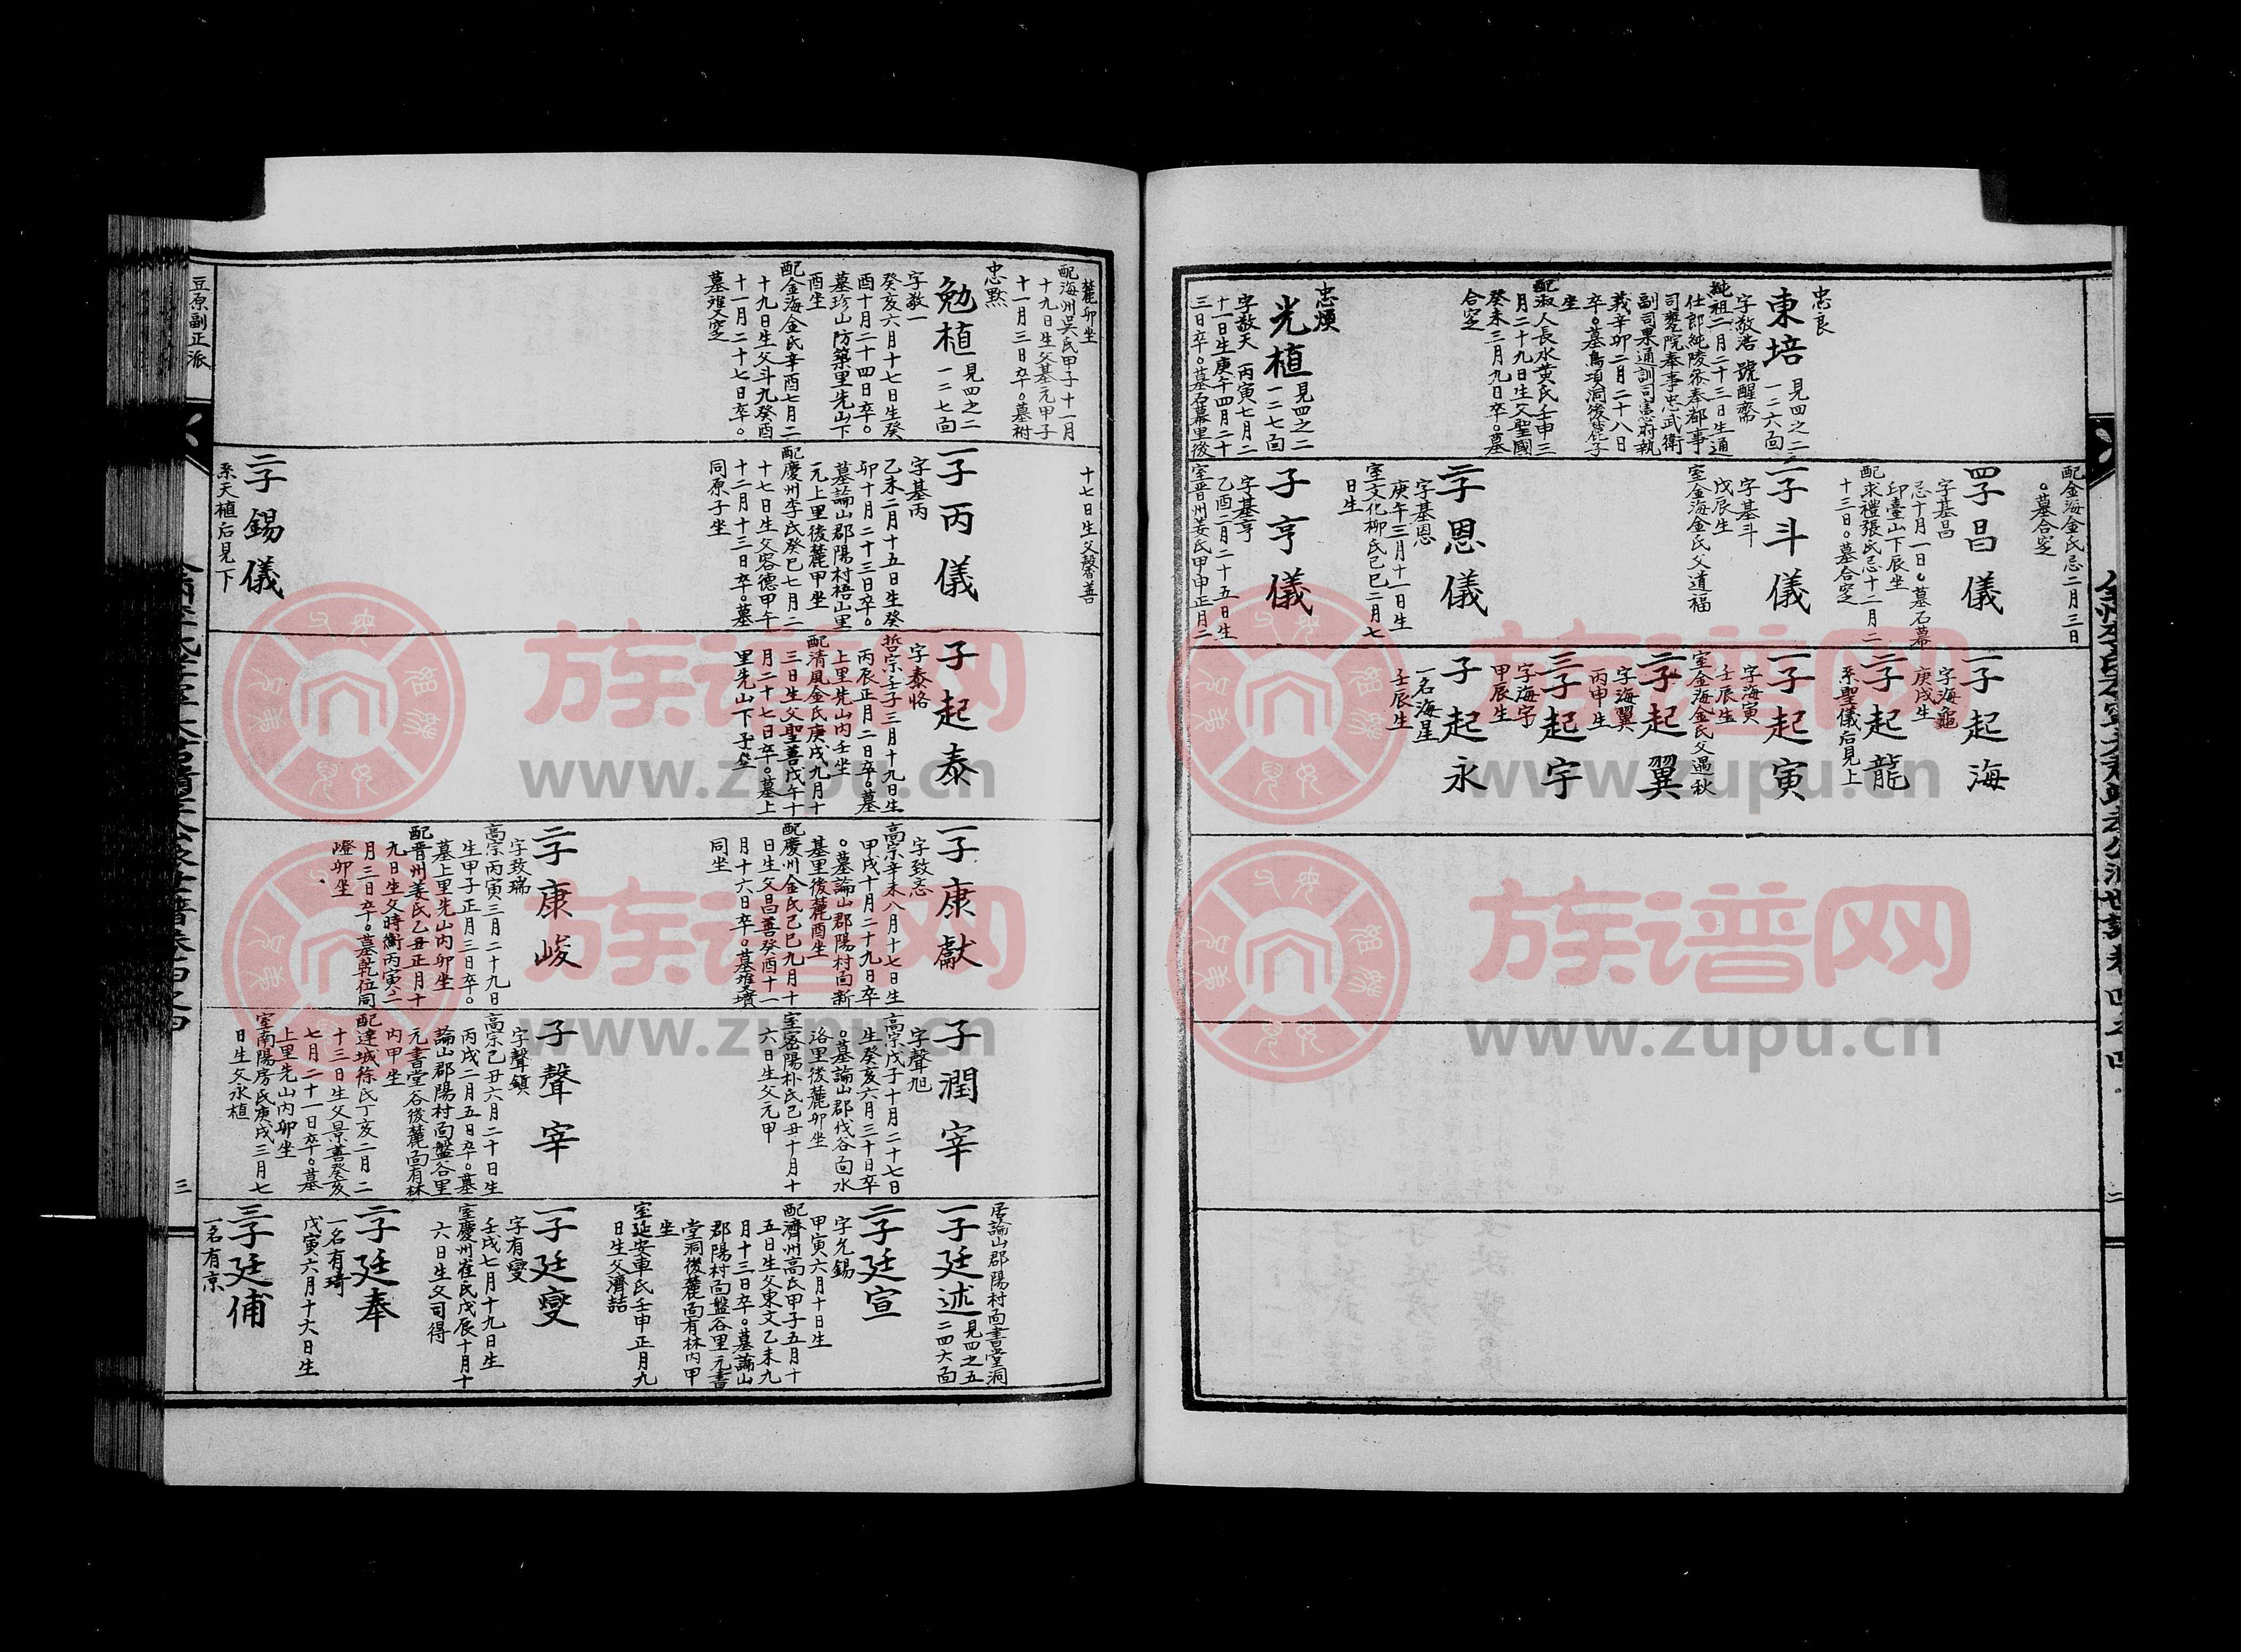 忠良
東培
見四之二
一二六面
字敎浩 號醒齋
純祖二月二十三日生通
仕郎純陵參奉都事
司饔院奉事忠武衛
副司果通訓司憲府執
義辛卯二月二十八日
卒。墓鳥項洞後麓子
坐
配淑人長水黃氏壬申三
月二十九日生父聖國
癸未三月九日卒。墓
合窆
忠煥
光植
見四之二
一二七面
字敎天 丙寅七月二
十一日生庚午四月二十
三日卒。墓石墓里後
配金海金氏忌二月三日
。墓合窆
四子昌儀
字基昌
忌十月一日。墓石幕
印臺山下辰坐
配求禮張氏忌十二月二
十三日。墓合窆
一子斗儀
字基斗
戊辰生
室金海金氏父道福
二子恩儀
字基恩
庚午三月十一日生
室文化柳氏己巳二月七
日生
子亨儀
字基亨
乙酉二月二十五日生
室晋州姜氏甲申正月二
一子起海
字海龜
庚戌生
二子起龍
系聖儀后見上
一子起寅
字海寅
壬辰生
室金海金氏父遇秋
二子起翼
字海翼
丙申生
三子起宇
字海宇
甲辰生
子起永
一名海星
壬辰生
二
麓卯坐
配海州吳氏甲子十一月
十九日生父基元甲子
十一月三日卒。墓祔
忠黙
勉植
見四之二
一二七面
字敎一
癸亥六月十七日生癸
酉十月二十四日卒。
墓珍山防築里先山下
酉坐
配金海金氏辛酉七月二
十九日生父斗九癸酉
十一月二十七日卒。
墓雙窆
十七日生父馨善
一子丙儀
字基丙
乙未二月十五日生癸
卯十月二十三日卒。
墓論山郡陽村梧山里
元上里後麓甲坐
配慶州李氏癸巳七月二
十七日生父容德甲午
十二月十三日卒。墓
同原子坐
二子錫儀
系天植后見下
子起泰
字泰恪
哲宗壬子三月十九日生
丙辰正月二日卒。墓
上里先山內壬坐
配清風金氏庚戌九月十
三日生父聖善戊午十
月二十七日卒。墓上
里先山下子坐
一子康獻
字致忞
高宗辛未八月十七日生
甲戌十月二十九日卒
。墓論山郡陽村面新
基里後麓酉坐
配慶州金氏己巳九月十
日生父昌善癸酉十一
月十六日卒。墓雙墳
同坐
二子康峻
字致瑞
高宗丙寅三月二十九日
生甲子正月三日卒。
墓上里先山內卯坐
配晋州姜氏乙丑正月十
九日生父時衡丙寅二
月三日卒。墓乾位同
嶝卯坐
子潤宰
字聲旭
高宗戊子十月二十七日
生癸亥六月三十日卒
。墓論山郡伐谷面水
洛里後麓卯坐
室密陽朴氏己丑十月十
六日生父元甲
子聲宰
字聲鎮
高宗己丑六月二十日生
丙戌二月五日卒。墓
論山郡陽村面盤谷里
元書堂谷後麓面有林
內甲坐
配達城徐氏丁亥二月二
十三日生父景善癸亥
七月二十一日卒。墓
上里先山內卯坐
室南陽房氏庚戌三月七
日生父永植
居論山郡陽村面書堂洞
一子廷述
見四之五
二四六面
二子廷宣
字允錫
甲寅六月十日生
配濟州高氏甲子五月十
五日生父東文乙未九
月十三日卒。墓論山
郡陽村面盤谷里元書
堂洞後麓面有林內甲
坐
室延安車氏壬申正月九
日生父濟喆
一子廷燮
字有燮
壬戌七月十九日生
室慶州崔氏戊辰十月十
六日生父司得
二子廷奉
一名有琦
戊寅六月十六日生
三子廷俌
一名有京
豆原副正派
三
族谱网
www.zupu.cn
族谱网
www.zupu.cn
族谱网
www.zupu.cn
族谱网
www.zupu.cn